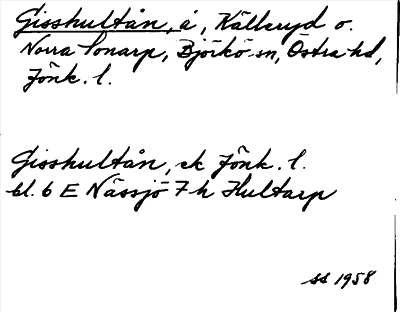 Gisshultån, å, Källeryd o.
Norra Solberga, Björkö sn, Östra hd,
Jönk. l.
Gisshultån, ek Jönk. l.
bl. 6 E Nässjö 7 h Hultarp
SS 1958